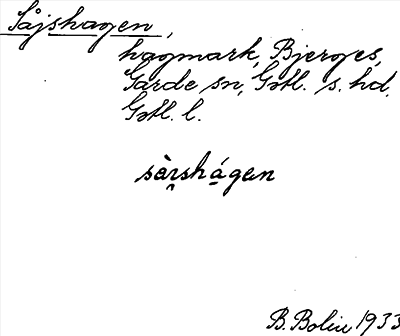 Såjshagen,
hagmark, Bjerges,
Garde sn, Gotl. s. hd,
Gotl. l.
sàrshágen
B. Bolin 1933